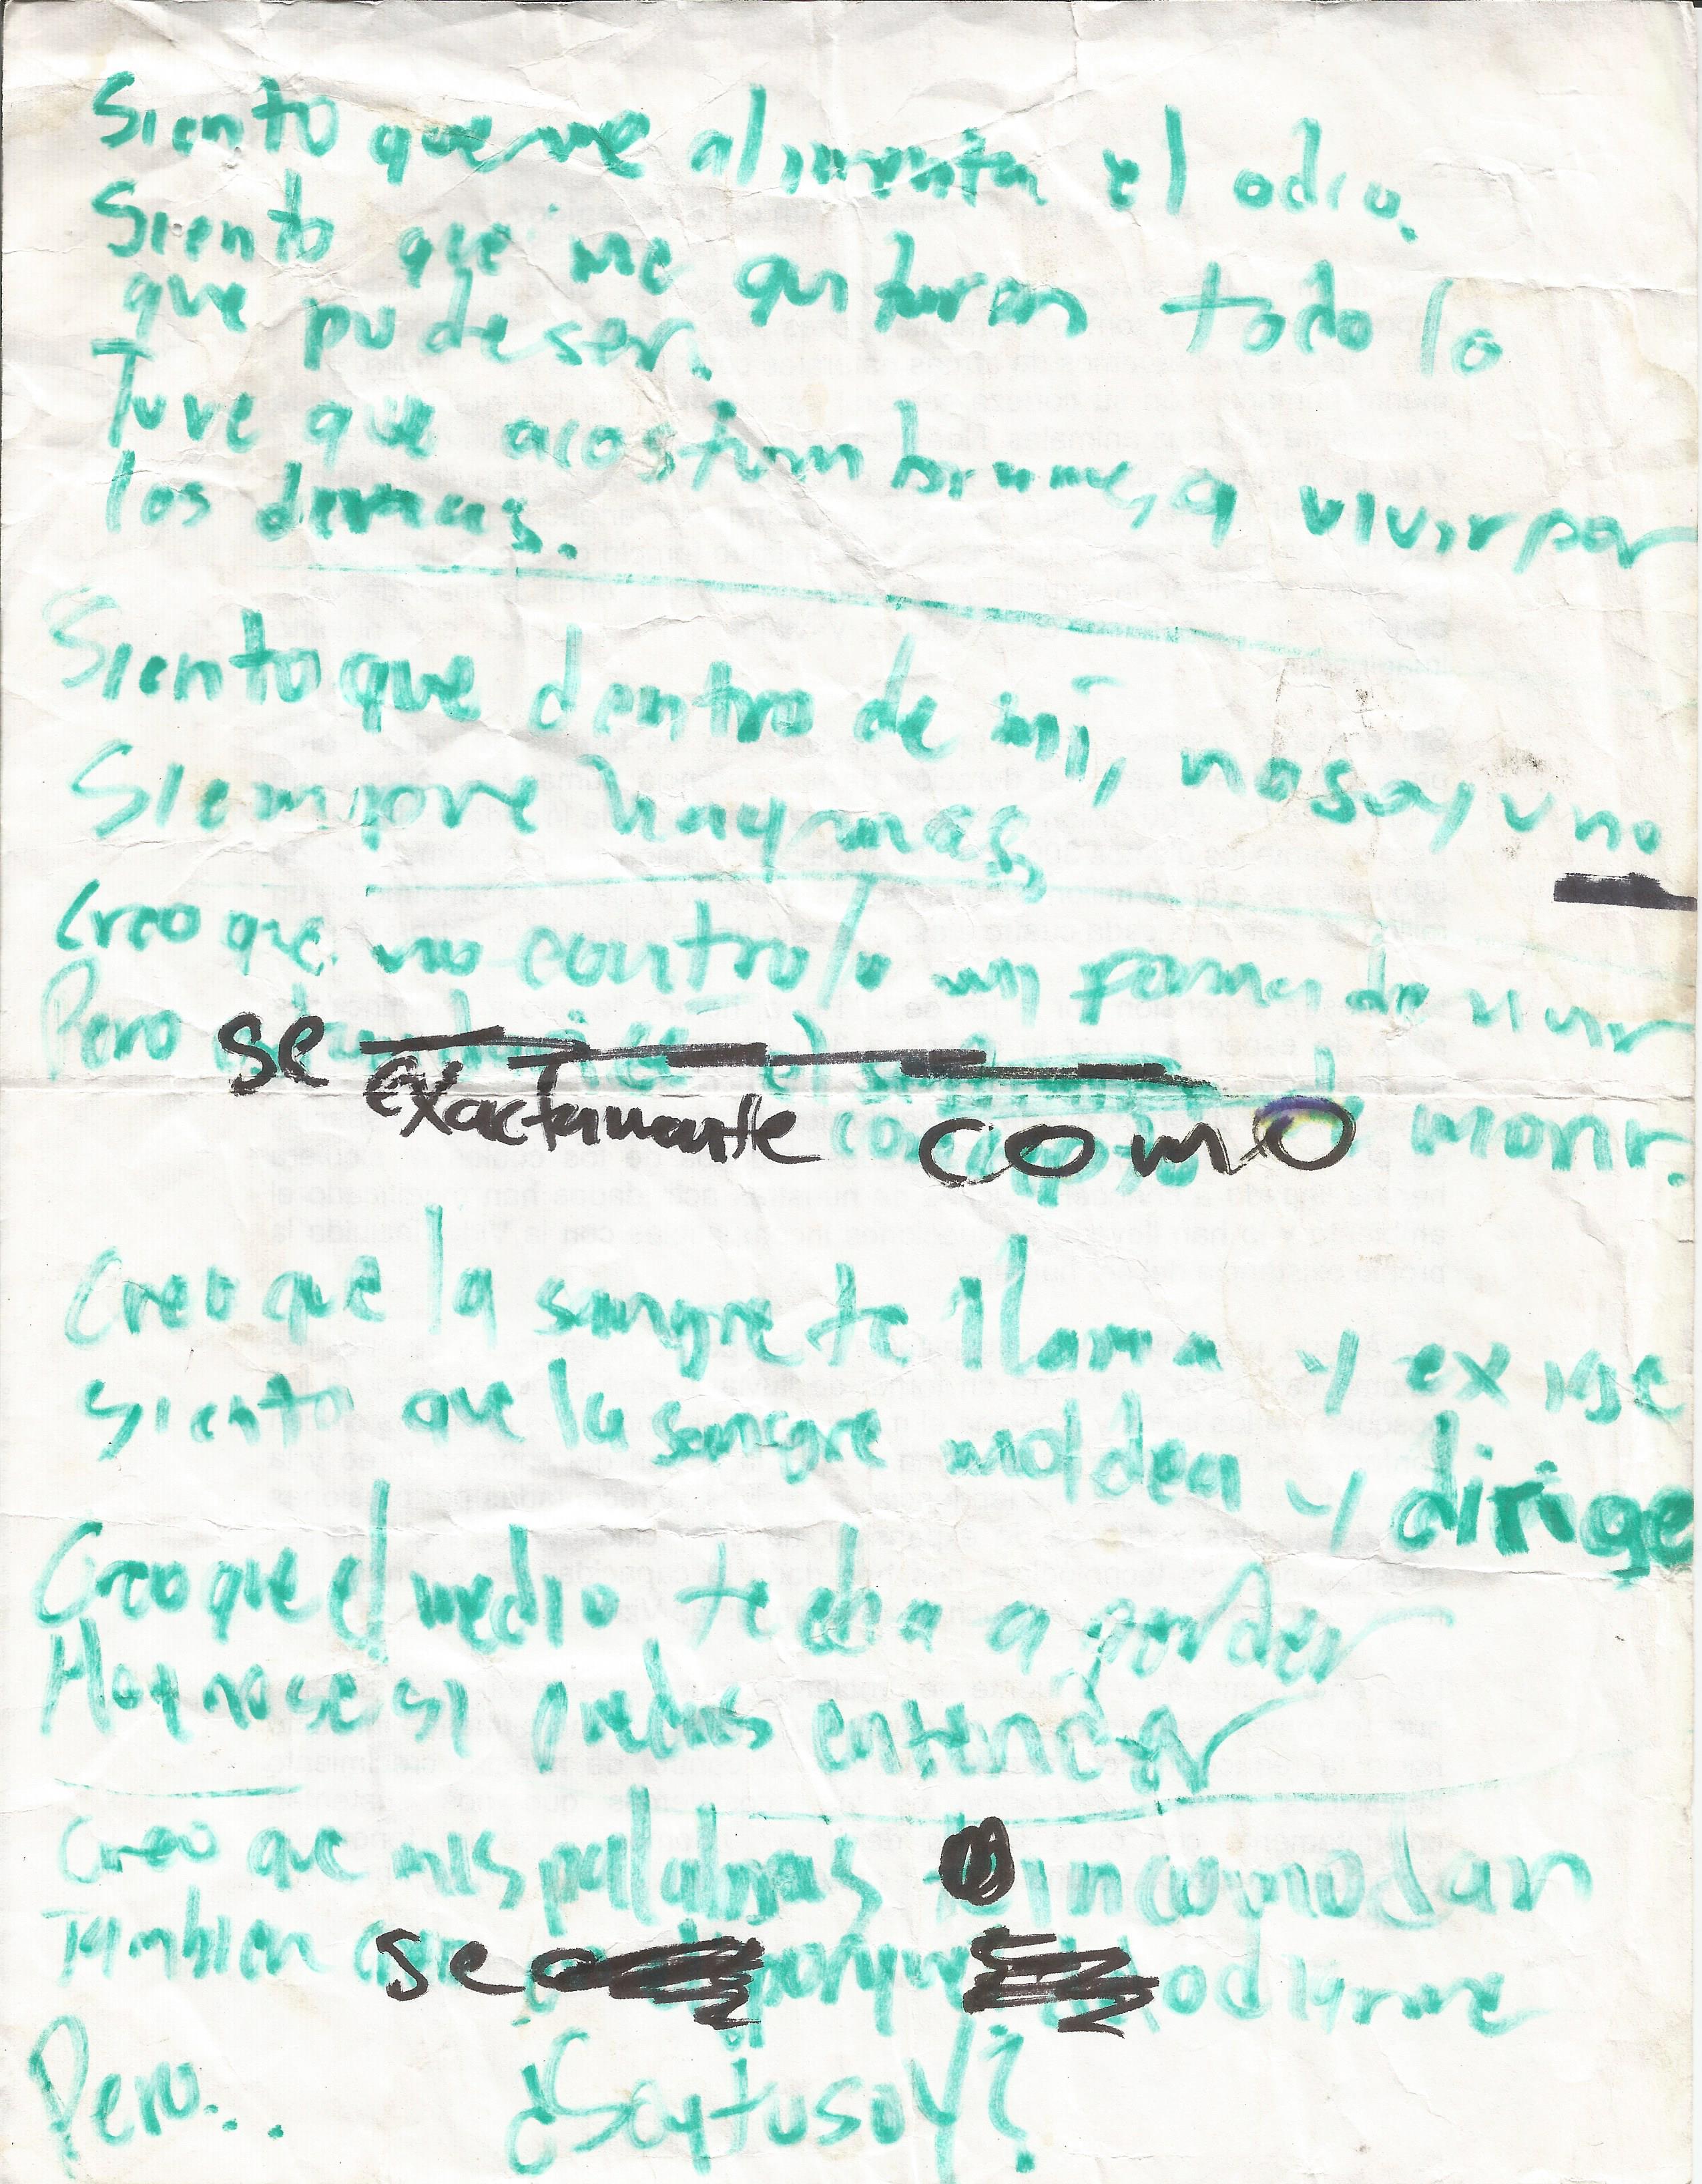 Siento que me alimenta el odio.
Siento que me quitaron todo lo
que pude ser.
Tuve que acostumbrarme, a vivir por
los demas.
Siento que dentro de mí, no soy uno
Siempre hay mas,
Creo que no controlo mi forma de vivir
Pero se
exactamante como morir.
Creo que la sangre te llama y exige
Siento que la sangre moldea y dirige
Creo que el medio te echa a perder
Hoy no se si puedas entender
Creo que mis palabras incomodan
Tambien se porque odiarme
Pero... ¿Soy tu soy?